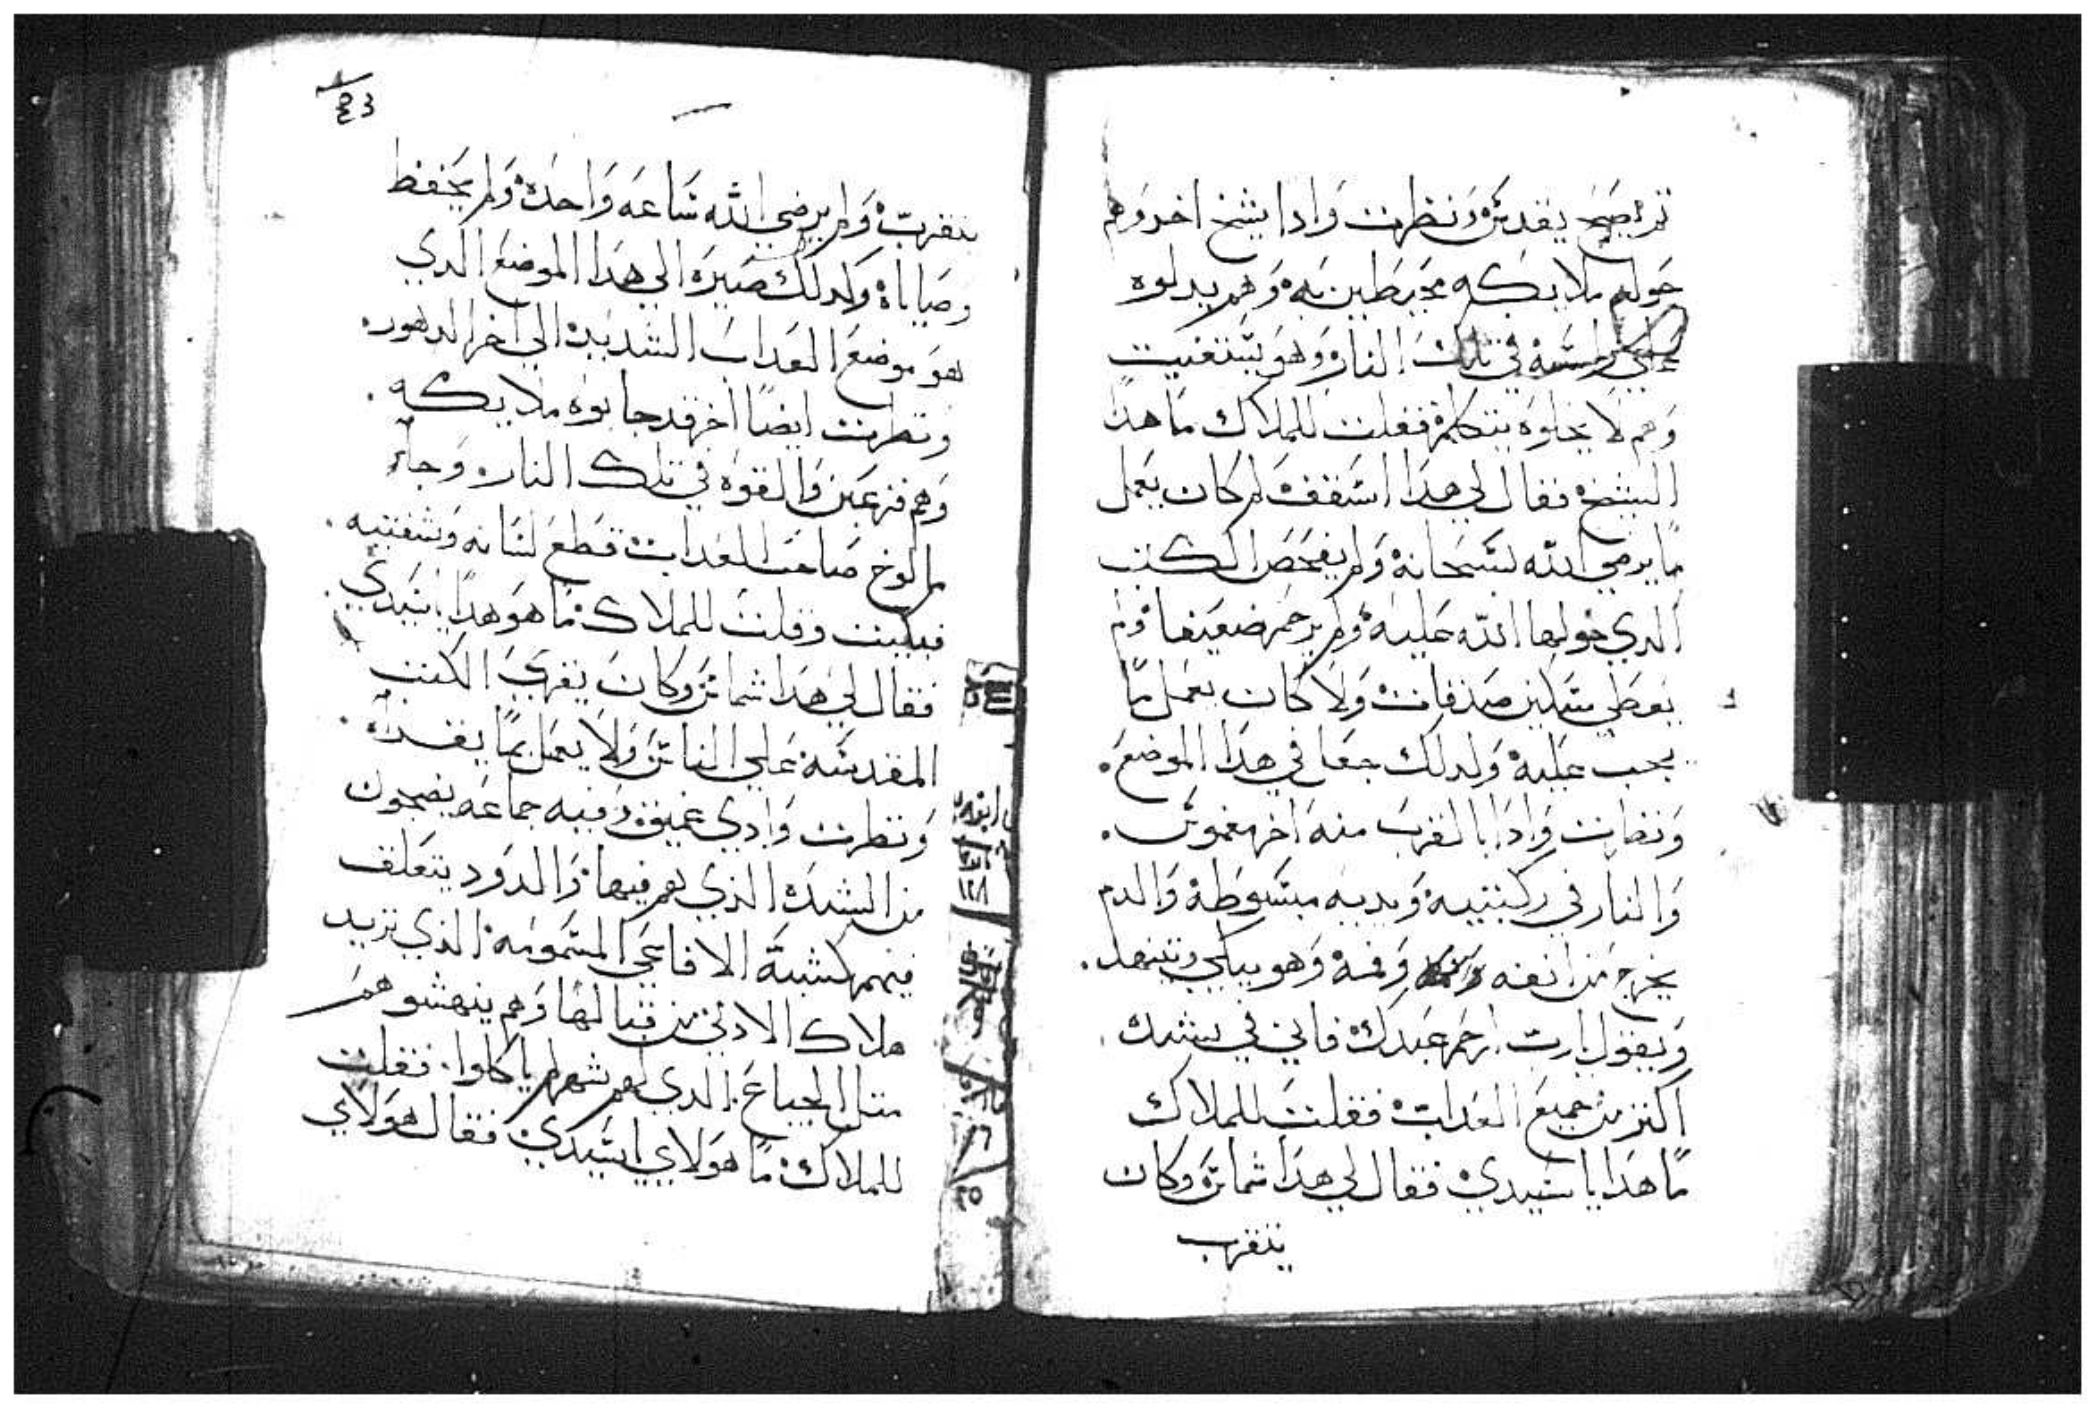 ثم يصيح يقدس ونظرت وادا بشيخ اخر وهم
حوله ملايكه محيطين به وهم يدلوه
علي راسه في تلك النار وهو يستغيت
وهم لا يخلوه يتكلم فقلت للملاك ما هدا
الشيخ فقال لي هدا اسقف لم كان يعمل
ما يرضي الله سبحانه ولم يفحص الكتب
الدي خولها الله عليه ولم يرحم ضعيفا ولم
يعطي مسكين صدقات ولا كان يعمل ما
يجب عليه ولدلك جعل في هدا الموضع
ونظرت وادا بالقرب منه اخر مغموس
والنار في ركبتيه ويديه مبسوطة والدم
يخرج من انفه وفمه وهو يبكي ويتنهد
ويقول يارب ارحم عبدك فاني في شدك
اكتر من جميع العداب فقلت للملاك
ما هدا يا سيدي فقال لي هدا شماس وكان
يتقرب
يتقرب ولم يرضي الله ساعه واحدة ولم يحفظ
وصاياه ولدلك صيره الي هدا الموضع الدي
هو موضع العداب الشديد الي اخر الدهور
ونظرت ايضا اخر قد جابوه ملايكه
وهم فزعين والقوه في تلك النار وجا
مالوخ صاحب العداب قطع لسانه وشفتيه
فبكيت وقلت للملاك ما هو هدا يا سيدي
فقال لي هدا شماس وكان يقري الكتب
المقدسه علي الناس ولا يعمل بما يقراه
ونظرت وادي عميق وفيه جماعه يضجون
من الشدة الذي هم فيها والدود يتعلق
فيهم كشبة الافاعي المسمومه الذي تريد
هلاك الادني من قبالها وهم ينهشوهم
متل الجياع الدي لهم شهر لم ياكلوا فقلت
للملاك ما هولاي ياسيدي فقال هولاي